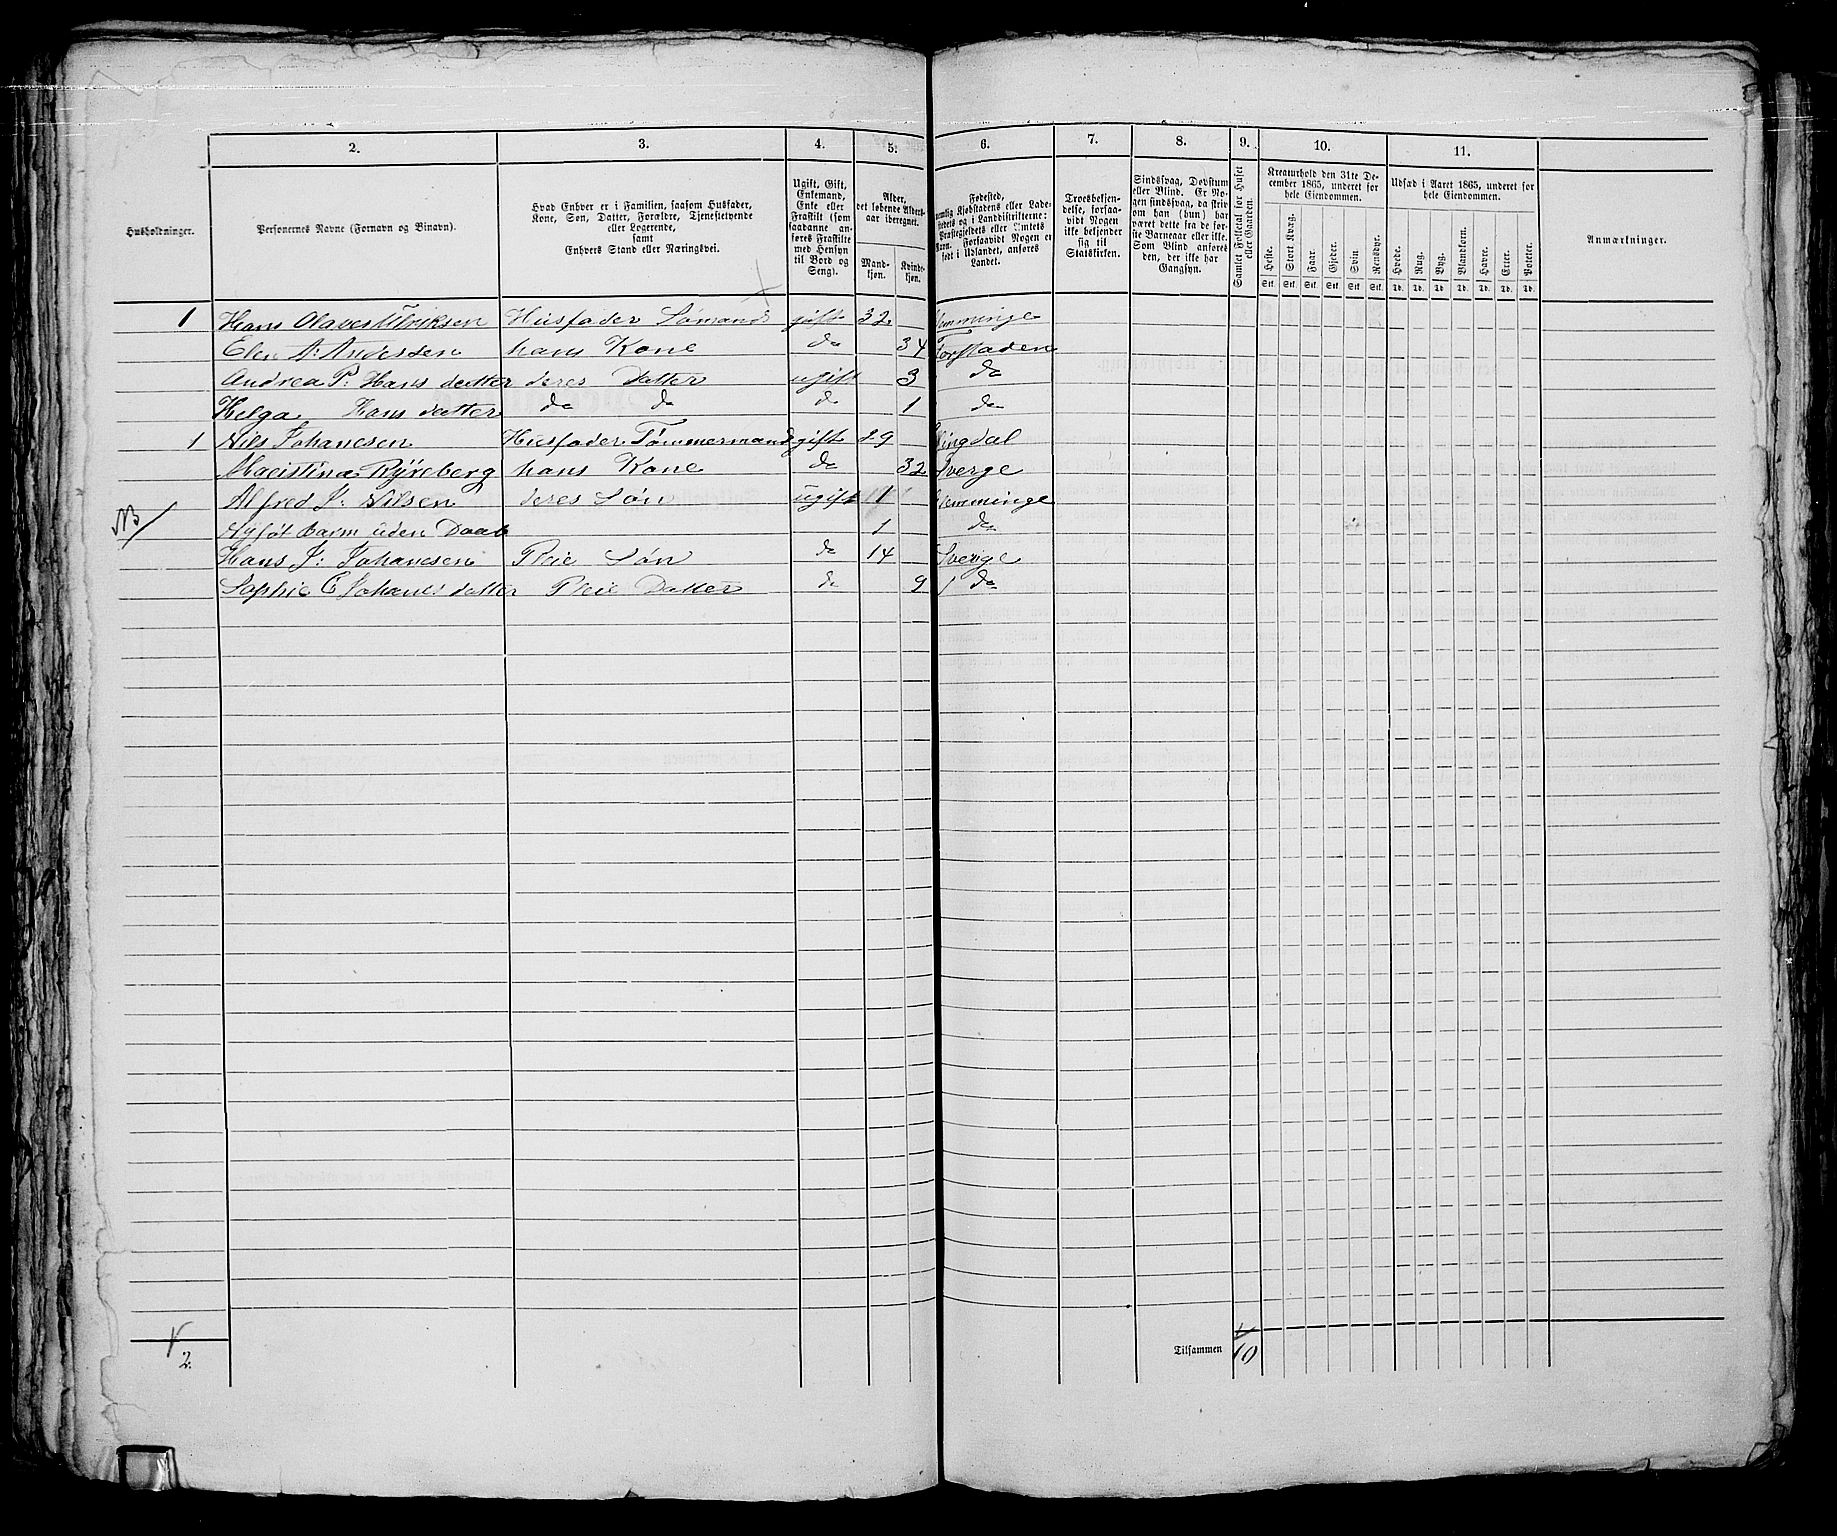 2. 3. 4. 5. 6. 7. 8. 9. 10. 11.
Husholdninger.
Personernes Navne (Fornavn og Binavn).
Hvad Enhver er i Familien, saasom Husfader,
Kone, Søn, Datter, Forældre, Tjenestetyende
eller Logerende,
samt
Enhvers Stand eller Næringsvei.
Ugift, Gift,
Enkemand,
Enke eller
Fraskilt (som
saadanne an-
føres Fraskilte
med Hensyn
til Bord og
Seng).
Alder,
det løbende Alders-
aar iberegnet.
Mand-
kjøn.
Kvinde-
kjøn.
Fødested,
nemlig Kjøbstadens eller Lade-
stedets og i Landdistrikterne:
Præstegjeldets eller Amtets
Navn. Forsaavidt Nogen er
født i Udlandet, anføres
Landet.
Troesbekjen-
delse, forsaa-
vidt Nogen
ikke bekjender
sig til
Statskirken.
Sindssvag, Døvstum
eller Blind. Er No-
gen sindssvag, da skriv
om han (hun) har
været dette fra de for-
ste Barneaar eller ikke.
Som Blind anføres
den, der ikke har
Gangsyn.
Samlet Folketal for Huset
eller Gaarden.
Kreaturhold den 31te De-
cember 1865, underet for
hele Eiendommen.
Heste. Stort Kvæg. Faar. Gjeder. Svin. Rensdyr.
Stk. Stk. Stk. Stk. Stk. Stk.
Udsæd i Aaret 1865, underet for
hele Eiendommen.
Hvede. Rug. Byg. Blandkorn. Havre. Erter. Poteter.
Td. Td. Td. Td. Td. Td. Td.
Anmærkninger.
1 Hans Olaves Ulriksen Husfader Sømand gift 32 Glemminge
Elen A: Andersen hans Kone do 34 Forstaden
Andrea P: Hans datter deres Datter ugift 3 do
Helga Hans datter do do do 1 do
1 Nils Johanesen Husfader Tømmermand gift 29 Tingdal
hans Kone do 32 Sverge
Alfred J: Nilsen deres Søn ugift 1 Glemminge
NB Nyføt barm uden Daab 1 do
Hans J: Johanesen Pleie Søn do 14 Sverige
Sophie E Johanes datter Pleie Datter do 9 do
2. Tilsammen 10